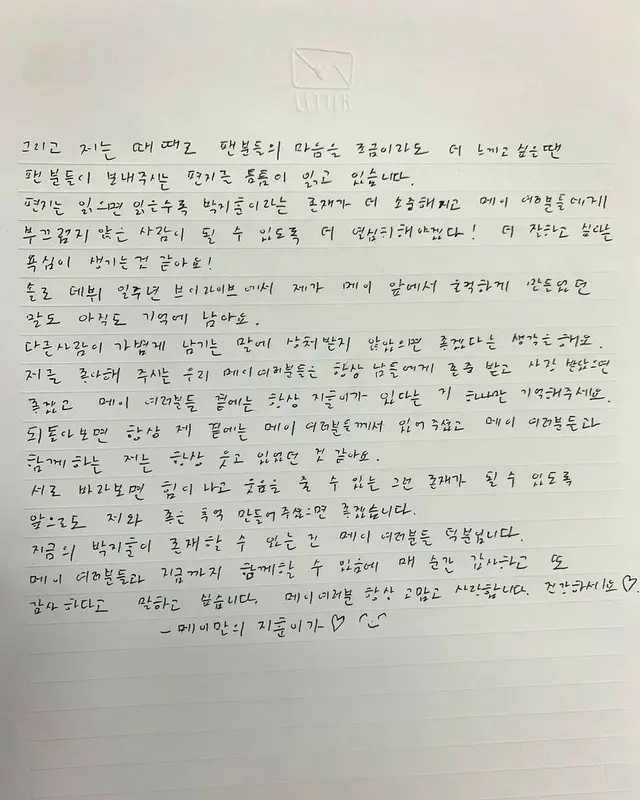 그리고 저는 때때로 팬분들의 마음을 조금이라도 더 느끼고 싶을땐
팬분들이 보내주시는 편지를 틈틈이 읽고 있습니다.
편지는 읽으면 읽을수록 박지훈이라는 존재가 더 소중해지고 메이 여러분들에게
부끄럽지 않은 사람이 될 수 있도록 더 열심히해야겠다! 더 잘하고 싶다는
욕심이 생기는것 같아요!
솔로 데뷔 일주년 브이라이브에서 제가 메이 앞에서 울컥하게 만들었던
말도 아직도 기억에 남아요.
다른사람이 가볍게 남기는 말에 상처받지 않았으면 좋겠다는 생각을해요.
저를 좋아해 주시는 우리 메이여러분들은 항상 남들에게 존중 받고 사랑 받았으면
좋겠고 메이 여러분들 곁에는 항상 지훈이가 있다는 거 하나만 기억해주세요.
되돌아보면 항상 제 곁에는 메이 여러분들께서 있어 주셨고 메이 여러분들과
함께하는 저는 항상 웃고 있었던 것 같아요.
서로 바라보면 힘이 나고 웃음을 줄 수 있는 그런 존재가 될 수 있도록
앞으로도 저와 좋은 추억 만들어주셨으면 좋겠습니다.
지금의 박지훈이 존재할 수 있는 건 메이 여러분들 덕분입니다.
메이 여러분들과 지금까지 함께할 수 있음에 매 순간 감사하고 또
감사하다고 말하고 싶습니다. 메이여러분 항상 고맙고 사랑합니다. 건강하세요♡.
- 메이만의 지훈이가♡